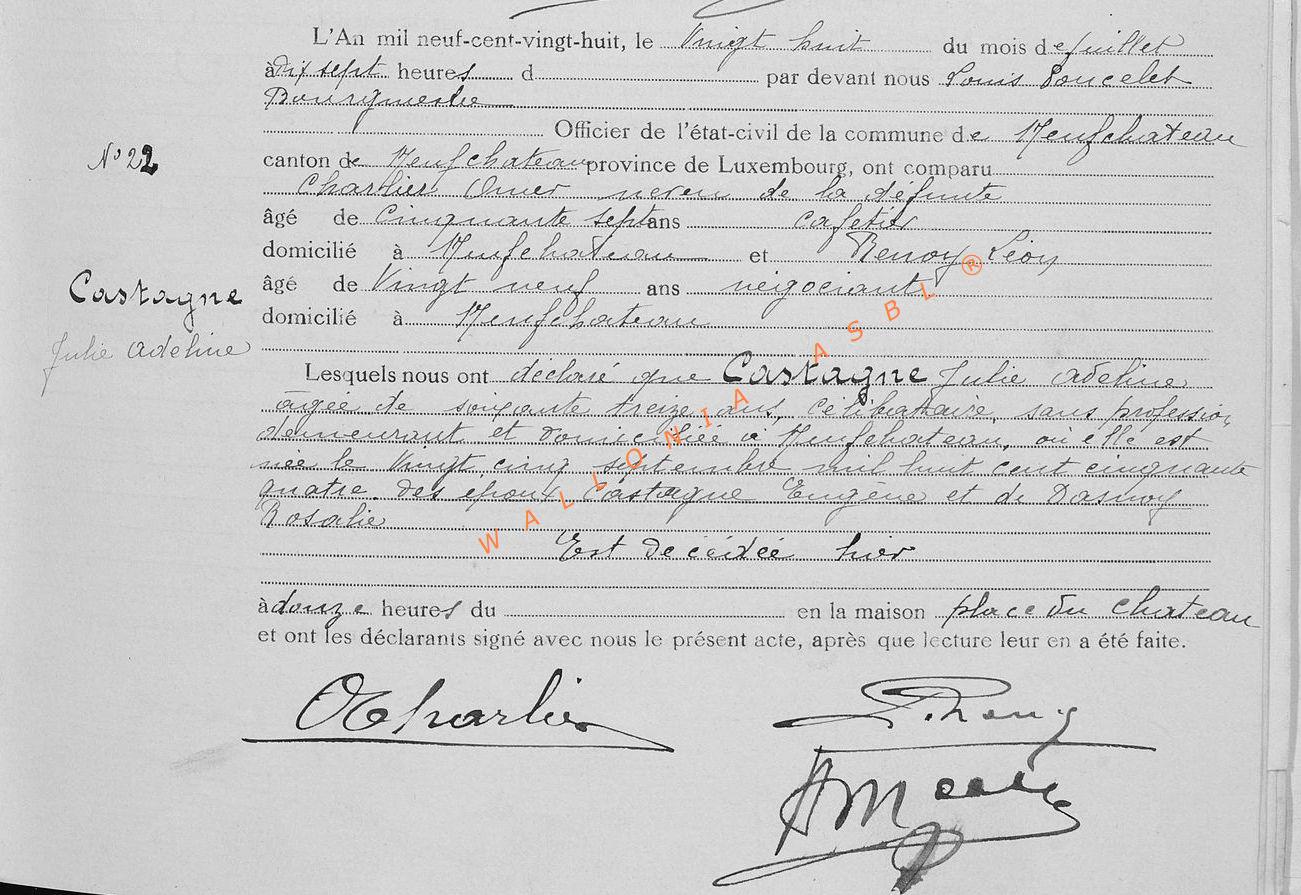 L'An mil neuf-cent-vingt-huit, le Vingt huit du mois de juillet
à dix sept heures d par devant nous Louis Poncelet
Bourgmestre
Officier de l'état-civil de la commune de Neufchateau
N° 22
canton de Neufchateau province de Luxembourg, ont comparu
Charlier Omer neveu de la défunte
âgé de Cinquante sept ans cafetier
domicilié à Neufchateau et Renoy Léon
Castagne
âgé de Vingt neuf ans négociant
domicilié à Neufchateau
Julie Adeline
Lesquels nous ont déclaré que Castagne Julie Adeline
agée de soixante treize ans, célibataire, sans profession,
demeurant et domiciliée à Neufchateau, où elle est
née le Vingt cinq septembre mil huit cent cinquante
quatre. des époux Castagne Eugène et de Dasnoy
Rosalie
Est décédée hier
à douze heures du en la maison place du Chateau
et ont les déclarants signé avec nous le présent acte, après que lecture leur en a été faite.
WALLONIA ASBL®
O Charlier